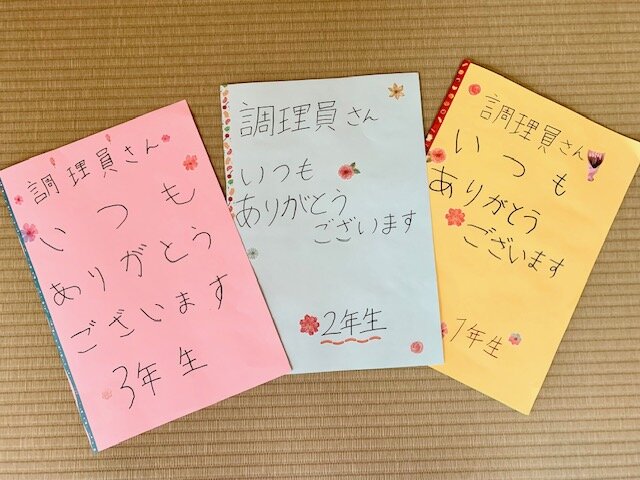 調理員さん
いつも
ありがとう
ございます
3年生
調理員さん
いつも
ありがとう
ございます
2年生
調理員さん
いつも
ありがとう
ございます
1年生